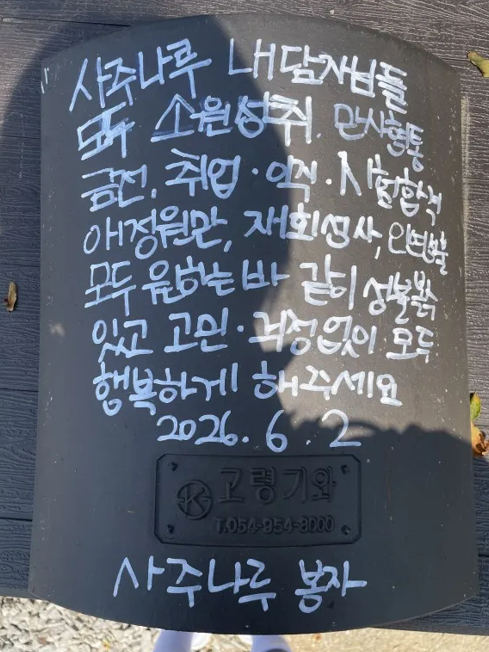 사주나루 내담자님들
모두 소원성취. 만사형통
금전, 취업·이직·시험합격
애정원만, 재회성사, 인연
모두 원하는 바 같이 성불
있고 고민·걱정없이 모두
행복하게 해주세요
2026. 6. 2
고령기와
T.054-954-8000
사주나루 봉자